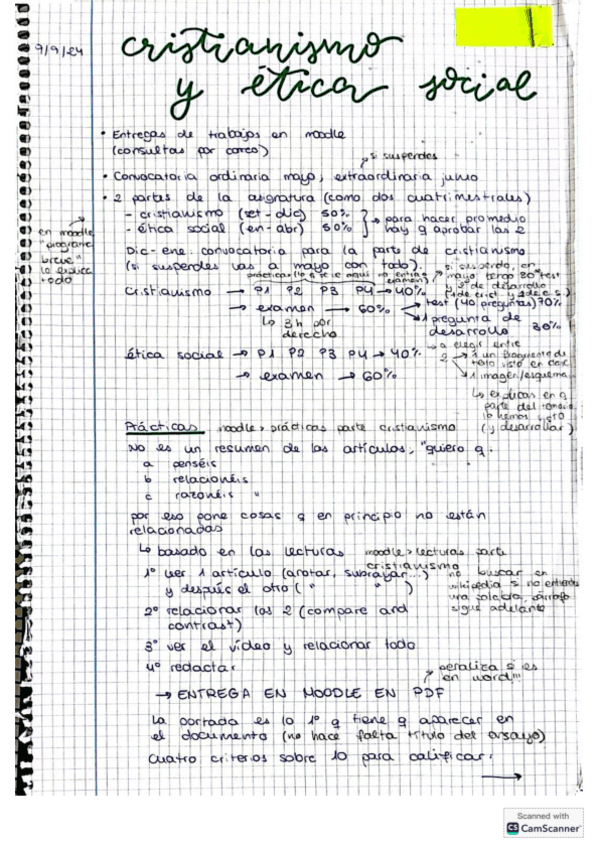 9/9/24
cristianismo
y ética social
• Entregas de trabajos en moodle
(consultas por correo)
si suspendes
• Convocatoria ordinaria mayo, extraordinaria junio
• 2 partes de la asignatura (como dos cuatrimestrales)
- cristianismo (set-dic) 50%
- ética social (en-abr) 50%
para hacer promedio
hay q aprobar las 2
en moodle
"programa
breve"
lo explica
todo
Dic-ene convocatoria para la parte de cristianismo
(si suspendes vas a mayo con todo)
si suspendo, en
mayo tengo 80 test
y 2 de desarrollo
(1 de crist. y 1 de e.s.)
prácticas (lo q se ve aquí no entra en
examen)
Cristianismo → P1 P2 P3 P4 → 40%
→ examen → 60%
test (40 preguntas) 70%
1 pregunta de
desarrollo 30%
↳ 3h por
derecho
ética social → P1 P2 P3 P4 → 40%
→ examen → 60%
a elegir entre
2 → 1 un fragmento de
texto visto en clase
→ 1 imagen/esquema
↳ explicas en q
parte del temario
lo hemos visto
(y desarrollar)
Prácticas moodle > prácticas parte cristianismo
No es un resumen de los artículos, "quiero q:
a penséis
b relacionéis
c razonéis "
por eso pone cosas q en principio no están
relacionadas
↳ basado en las lecturas moodle > lecturas parte
cristianismo
1º leer 1 artículo (anotar, subrayar...)
y después el otro ( " " )
no buscar en
wikipedia si no entiendes
una palabra, párrafo
sigue adelante
2º relacionar los 2 (compare and
contrast)
3º ver el vídeo y relacionar todo
4º redactar
penaliza si es
en word!!!
→ ENTREGA EN MOODLE EN PDF
La portada es lo 1º q tiene q aparecer en
el documento (no hace falta título del ensayo)
Cuatro criterios sobre 10 para calificar:
→
Scanned with
CS CamScanner